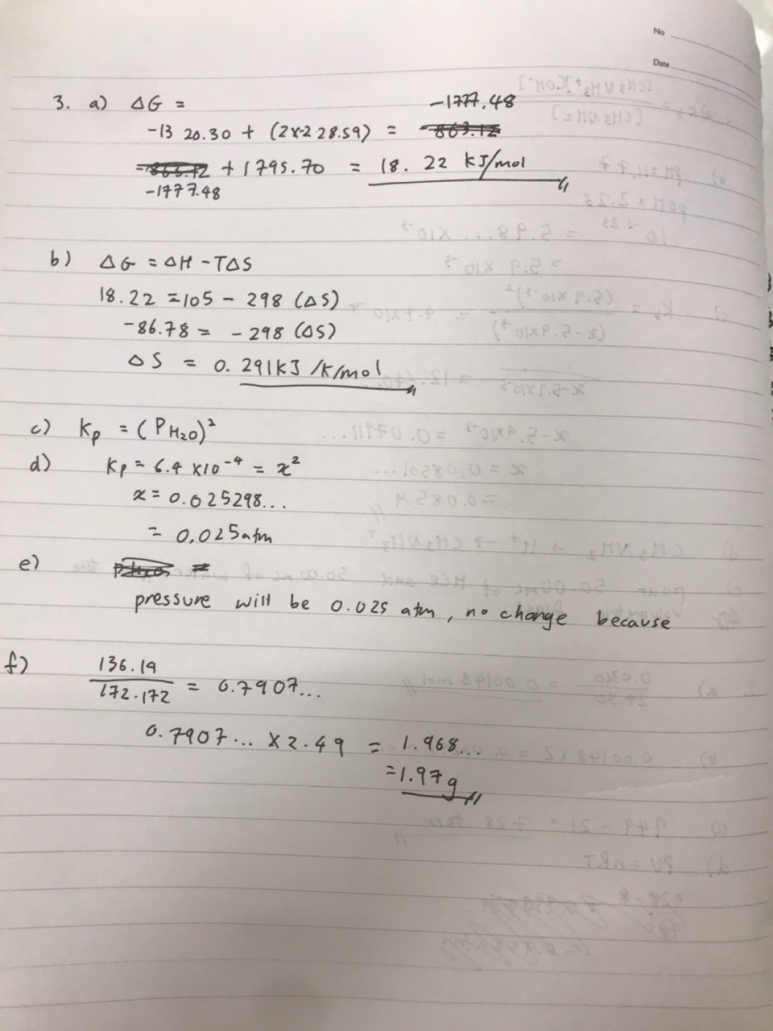 No
Date
3. a) ΔG =
-1320.30 + (2x-228.59) = -1777.48
-1777.48 + 1795.70 = 18.22 kJ/mol
b) ΔG = ΔH - TΔS
18.22 = 105 - 298 (ΔS)
-86.78 = -298 (ΔS)
ΔS = 0.291kJ/K/mol
c) Kp = (P H2O)²
d) Kp = 6.4 x10⁻⁴ = x²
x = 0.025298...
= 0.025atm
e)
pressure will be 0.025 atm, no change because
f) 136.19 / 172.172 = 0.7907...
0.7907... x 2.49 = 1.968...
= 1.97g